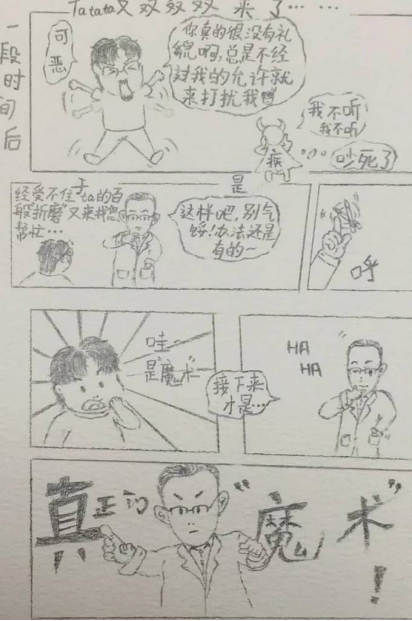 Tatata又双叒叕来了……
一段时间后
可恶
你真的很没有礼
貌啊,总是不经
过我的允许就
来打扰我
我不听
我不听
痰
吵死了
是
经受不住"ta"的百
般折磨 又来找您
帮忙…
这样吧,别气
馁!办法还是
有的~
呼
哇~
是"魔术"
接下来
才是…
HA
HA
真正的"魔术"!